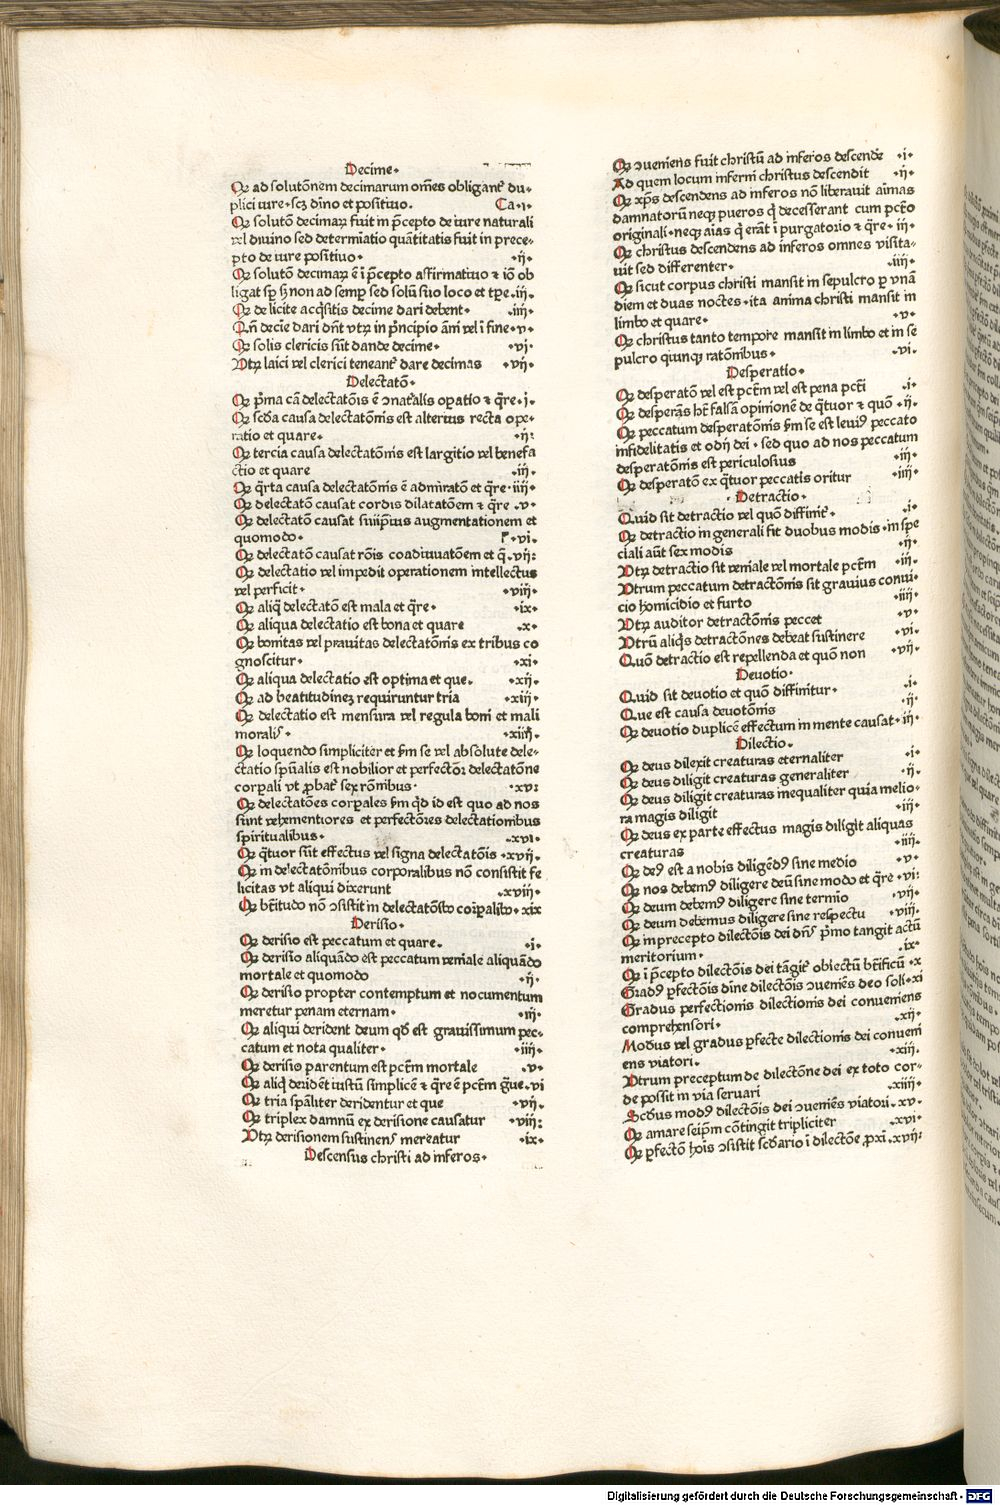 Decime·
Qꝫ ad solutōnem decimarum om̄es obligant᷑ du-
plici iure·scꝫ diīno et positiuo. Ca·i·
Qꝫ solutō decimaꝝ fuit in p̄cepto de iure naturali
vel diuino sed determīatio quātitatis fuit in prece-
pto de iure positiuo· ·ij·
Qꝫ solutō decimaꝝ ē ī p̄cepto affirmatiuo ⁊ iō ob
ligat sꝑ sꝫ non ad semꝑ sed solū suo loco et tꝑe·iij.
Qꝫ de licite acq̄sitis decime dari debent· ·iiij·
Qn̄ decīe dari dn̄t vtꝝ in p̄ncipio āni vel ī fine·v·
Qꝫ solis clericis sūt dande decime· ·vj·
Vtꝝ laici vel clerici teneant᷑ dare decimas ·vij·
Delectatō·
Qꝫ p̄ma cā delectatōis ē ɔnat᷑alis oꝑatio ⁊ q̄re·j.
Qꝫ scd̄a causa delectatōnis est alterius recta ope-
ratio et quare· ·ij:
Qꝫ tercia causa delectatōnis est largitio vel benefa
ctio et quare ·iij.
Qꝫ q̄rta causa delectatōnis ē admiratō et q̄re·iiij·
Qꝫ delectatō causat cordis dilatatōem ⁊ q̄re ·v·
Qꝫ delectatō causat suiip̄ius augmentationem et
quomodo· ·vi.
Qꝫ delectatō causat rōis coadiuuatōem et q̄·vij:
Qꝫ delectatio vel impedit operationem intellectus
vel perficit· ·viij·
Qꝫ aliq̄ delectatō est mala et q̄re· ·ix·
Qꝫ aliqua delectatio est bona et quare ·x·
Qꝫ bonitas vel prauitas delectatōnis ex tribus co
gnoscitur· ·xi·
Qꝫ aliqua delectatio est optima et que. ·xij·
Qꝫ ad beatitudinēꝫ requiruntur tria ·xiij·
Qꝫ delectatio est mensura vel regula boni et mali
moralis· ·xiiij.
Qꝫ loquendo simpliciter et s̄m se vel absolute dele-
ctatio sp̄ualis est nobilior et perfectioꝛ delectatōne
corꝑali vt ꝓbat᷑ sex rōnibus· ·xv:
Qꝫ delectatōes corꝑales s̄m q̄d id est quo ad nos
sunt vehementiores et perfectōres delectationibus
spiritualibus· ·xvi·
Qꝫ q̄tuor sūt effectus vel signa delectatōis ·xvij·
Qꝫ in delectatōnibus corporalibus nō consistit fe
licitas vt aliqui dixerunt ·xviij·
Qꝫ b̄titudo nō ɔsistit in delectatōib᷒ corꝑalib᷒·xix
Derisio·
Qꝫ derisio est peccatum et quare. ·i·
Qꝫ derisio aliquādo est peccatum veniale aliquādo
mortale et quomodo ·ij·
Qꝫ derisio propter contemptum et nocumentum
meretur penam eternam· ·iij·
Qꝫ aliqui derident deum qd̄ est grauissimum pec-
catum et nota qualiter· ·iiij·
Qꝫ derisio parentum est pctm̄ mortale ·v·
Qꝫ aliq̄ deridēt iustū simplicē ⁊ q̄re ē pctm̄ gͣue.vi
Qꝫ tria sp̄aliter deridentur et que ·vij·
Qꝫ triplex damnū ex derisione causatur ·viij:
Vtꝝ derisionem sustinens mereatur ·ix·
Descensus christi ad inferos·
Qꝫ ɔueniens fuit christū ad inferos descende᷑ ·i·
Ad quem locum inferni christus descendit ·ij·
Qꝫ xp̄s descendens ad inferos nō liberauit aīmas
damnatorū neqꝫ pueros q̄ decesserant cum pctō
originali·neqꝫ aīas q̄ erāt ī purgatorio ⁊ q̄re·iij·
Qꝫ christus descendens ad inferos omnes visita-
uit sed differenter· ·iiij·
Qꝫ sicut corpus christi mansit in sepulcro ꝑ vnā
diem et duas noctes·ita anima christi mansit in
limbo et quare· ·v·
Qꝫ christus tanto tempore mansit in limbo et in se
pulcro quinqꝫ ratōnibus· ·vi·
Desperatio·
Qꝫ desperatō vel est pctm̄ vel est pena pcti ·i·
Qꝫ desperās hꝫ falsā opinionē de q̄tuor ⁊ quō ·ij·
Qꝫ peccatum desperatōnis s̄m se est leui᷒ peccato
infidelitatis et odij dei·sed quo ad nos peccatum
desperatōnis est periculosius ·iij·
Qꝫ desperatō ex q̄tuor peccatis oritur ·iiij·
Detractio·
Quid sit detractio vel quō diffinit᷑· ·i·
Qꝫ detractio in generali fit duobus modis·in spe
ciali aūt sex modis ·ij·
Vtꝝ detractio sit veniale vel mortale pctm̄ ·iij·
Vtrum peccatum detractōnis sit grauius conui
cio homicidio et furto ·iiij·
Vtꝝ auditor detractōnis peccet ·v·
Vtrū aliq̄s detractōnes debeat sustinere ·vi·
Quō detractio est repellenda et quō non ·vij·
Deuotio·
Quid sit deuotio et quō diffinitur· ·i·
Que est causa deuotōnis ·ij·
Qꝫ deuotio duplicē effectum in mente causat·iij·
Dilectio·
Qꝫ deus dilexit creaturas eternaliter ·i·
Qꝫ deus diligit creaturas generaliter ·ij·
Qꝫ deus diligit creaturas inequaliter quia melio-
ra magis diligit ·iij·
Qꝫ deus ex parte effectus magis diligit aliquas
creaturas ·iiij·
Qꝫ de᷒ est a nobis diligēd᷒ sine medio ·v·
Qꝫ nos debem᷒ diligere deū sine modo et q̄re ·vi·
Qꝫ deum debem᷒ diligere sine termio ·vij·
Qꝫ deum debemus diligere sine respectu ·viij·
Qꝫ in precepto dilectōis dei dn̄s p̄mo tangit actū
meritorium· ·ix·
Qꝫ ī p̄cepto dilectōis dei tāgit᷑ obiectū b̄tificū ·x
Grad᷒ ꝑfectōis dīne dilectōis ɔueniēs deo soli·xi
Gradus perfectionis dilectionis dei conueniens
comprehensori· ·xij·
Modus vel gradus ꝑfecte dilectionis dei conueni
ens viatori· ·xiij·
Vtrum preceptum de dilectōne dei ex toto cor-
de possit in via seruari ·xiiij·
Scd̄us mod᷒ dilectōis dei ɔueniēs viatori·xv·
Qꝫ amare seip̄m cōtingit tripliciter ·xvi·
Qꝫ ꝑfectō hoīs ɔsistit scd̄ario ī dilectōe ꝓxi·xvij:
Digitalisierung gefördert durch die Deutsche Forschungsgemeinschaft - DFG